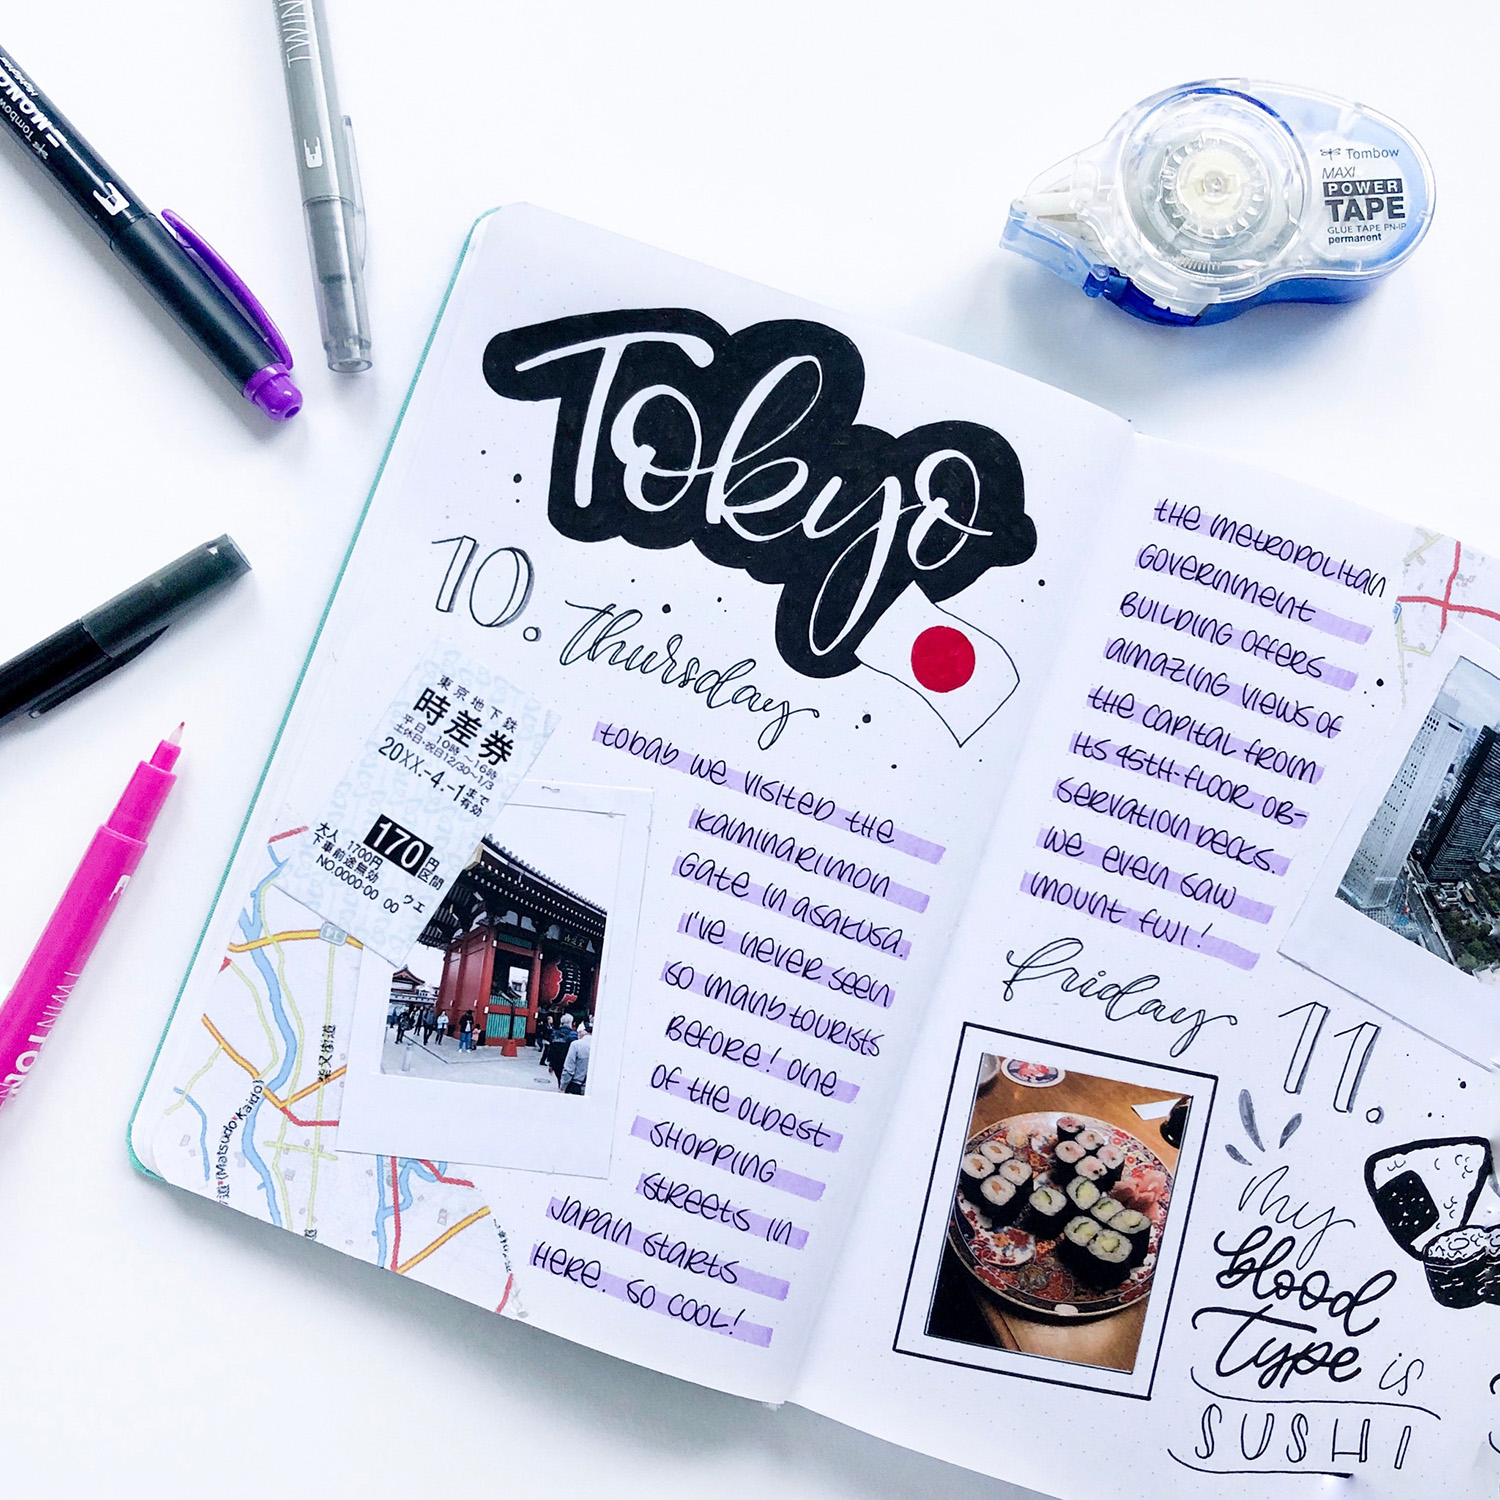 TWIN
MONO
Tombow
Tombow
MAXI
POWER
TAPE
GLUE TAPE PN-IP
permanent
Tokyo
10. Thursday
東京地下鉄
時差券
平日・10時～16時
土休日・祝日12/30～1/3
20XX.-4.-1まで有効
170円区間
大人 1700円
下車前途無効
NO.0000-00 00 ウエ
today we visited the
Kaminarimon
Gate in Asakusa.
I've never seen
so many tourists
before! One
of the oldest
shopping
streets in
Japan starts
here. So cool!
(Matsudo Kaido)
the metropolitan
government
building offers
amazing views of
the capital from
its 45th-floor ob-
servation decks.
We even saw
Mount Fuji!
friday
11.
My
blood
Type is
SUSHI
TWINTO